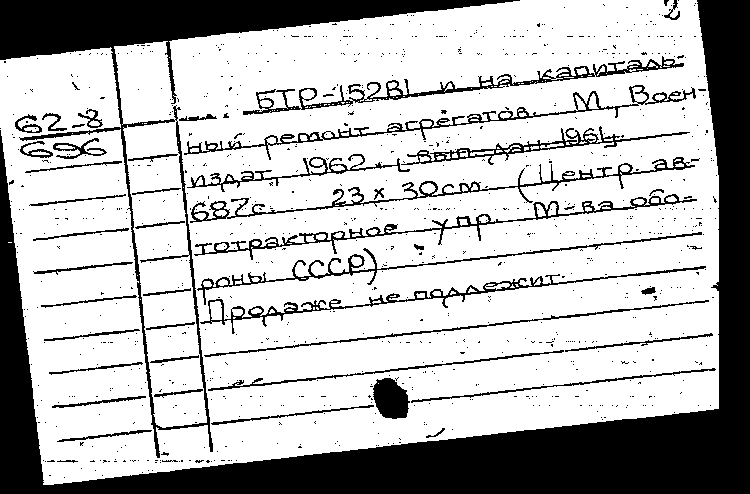 2
62-8
696
БТР-152В1 и на капиталь-
ный ремонт агрегатов. М., Воен-
издат, 1962. [вып. дан. 1961].
687с. 23 х 30см. (Центр. ав-
тотракторное упр. М-ва обо-
роны СССР)
Продаже не подлежит.